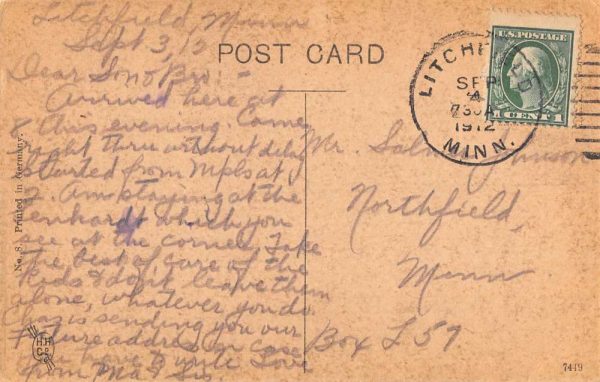 Litchfield, Minn
Sept 3, 12
POST CARD
Dear Son & Bro: -
Arrived here at
8 this evening Came
right thru without delay
Started from Mpls at
2. Am staying at the
Lenhardt which you
see at the corner. Take
the best of care of the
Kids & don't leave them
alone, whatever you do.
Chas is sending you our
Future address in case
You have to write Love
from Ma & Sis.
LITCHFIELD
SEP
4
1912
MINN.
U.S. POSTAGE
1 CENT 1
Mr.
Northfield,
Minn
Box L 57
No. 8. Printed in Germany.
H H
7449